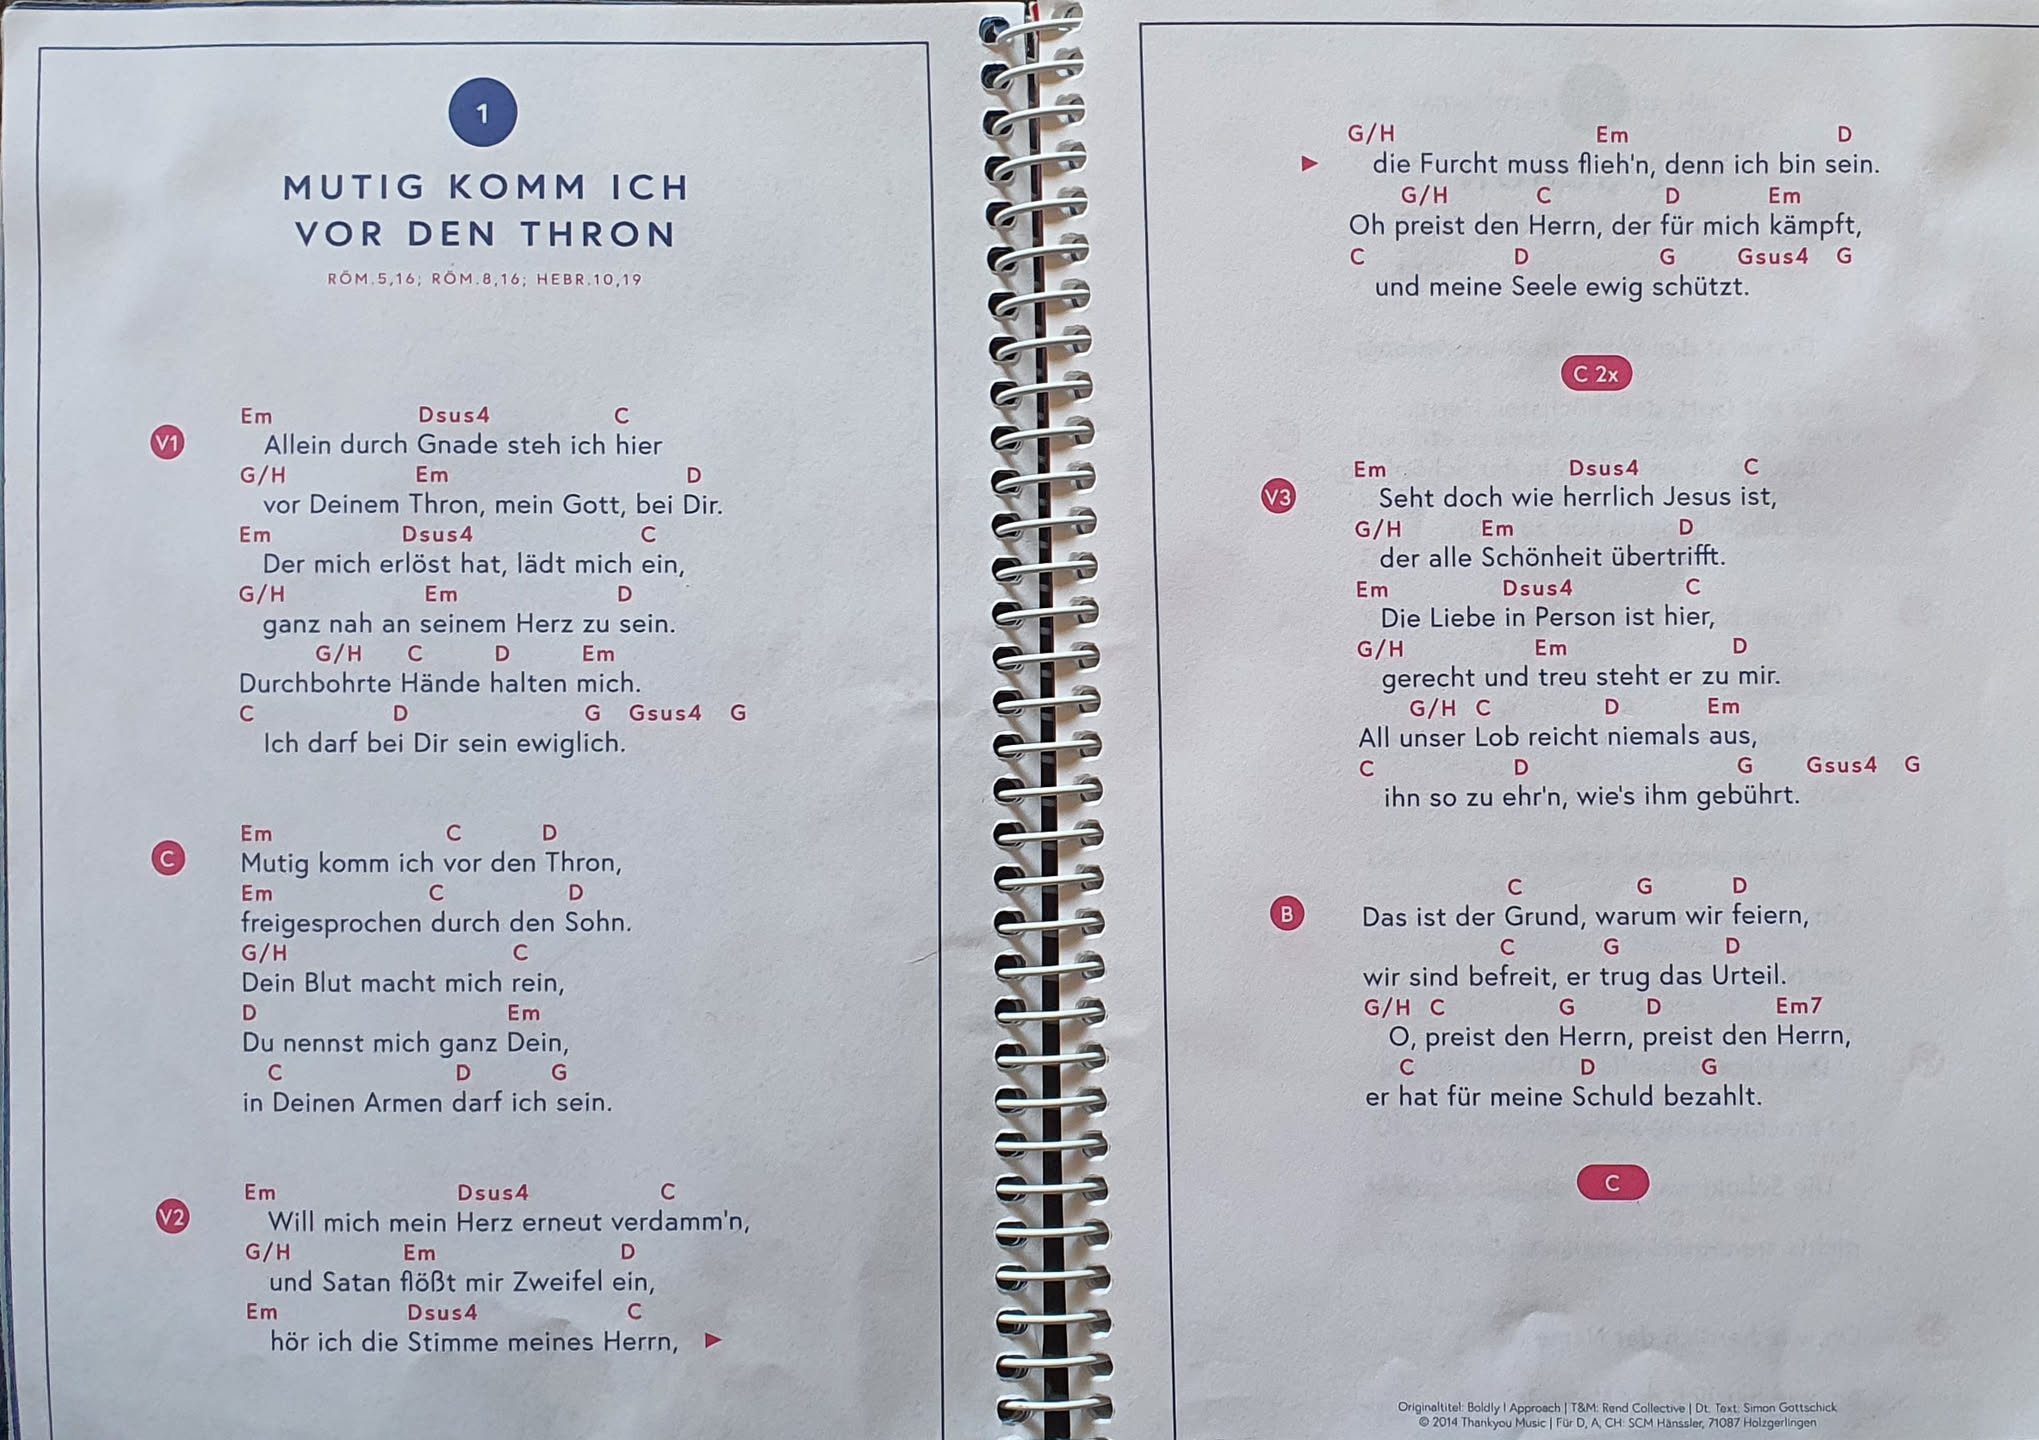 1
MUTIG KOMM ICH
VOR DEN THRON
RÖM.5,16; RÖM.8,16; HEBR.10,19
Em Dsus4 C
V1 Allein durch Gnade steh ich hier
G/H Em D
vor Deinem Thron, mein Gott, bei Dir.
Em Dsus4 C
Der mich erlöst hat, lädt mich ein,
G/H Em D
ganz nah an seinem Herz zu sein.
G/H C D Em
Durchbohrte Hände halten mich.
C D G Gsus4 G
Ich darf bei Dir sein ewiglich.
Em C D
C Mutig komm ich vor den Thron,
Em C D
freigesprochen durch den Sohn.
G/H C
Dein Blut macht mich rein,
D Em
Du nennst mich ganz Dein,
C D G
in Deinen Armen darf ich sein.
Em Dsus4 C
V2 Will mich mein Herz erneut verdamm'n,
G/H Em D
und Satan flößt mir Zweifel ein,
Em Dsus4 C
hör ich die Stimme meines Herrn, ►
G/H Em D
► die Furcht muss flieh'n, denn ich bin sein.
G/H C D Em
Oh preist den Herrn, der für mich kämpft,
C D G Gsus4 G
und meine Seele ewig schützt.
C 2x
Em Dsus4 C
V3 Seht doch wie herrlich Jesus ist,
G/H Em D
der alle Schönheit übertrifft.
Em Dsus4 C
Die Liebe in Person ist hier,
G/H Em D
gerecht und treu steht er zu mir.
G/H C D Em
All unser Lob reicht niemals aus,
C D G Gsus4 G
ihn so zu ehr'n, wie's ihm gebührt.
C G D
B Das ist der Grund, warum wir feiern,
C G D
wir sind befreit, er trug das Urteil.
G/H C G D Em7
O, preist den Herrn, preist den Herrn,
C D G
er hat für meine Schuld bezahlt.
C
Originaltitel: Boldly I Approach | T&M: Rend Collective | Dt. Text: Simon Gottschick
© 2014 Thankyou Music | Für D, A, CH: SCM Hänssler, 71087 Holzgerlingen